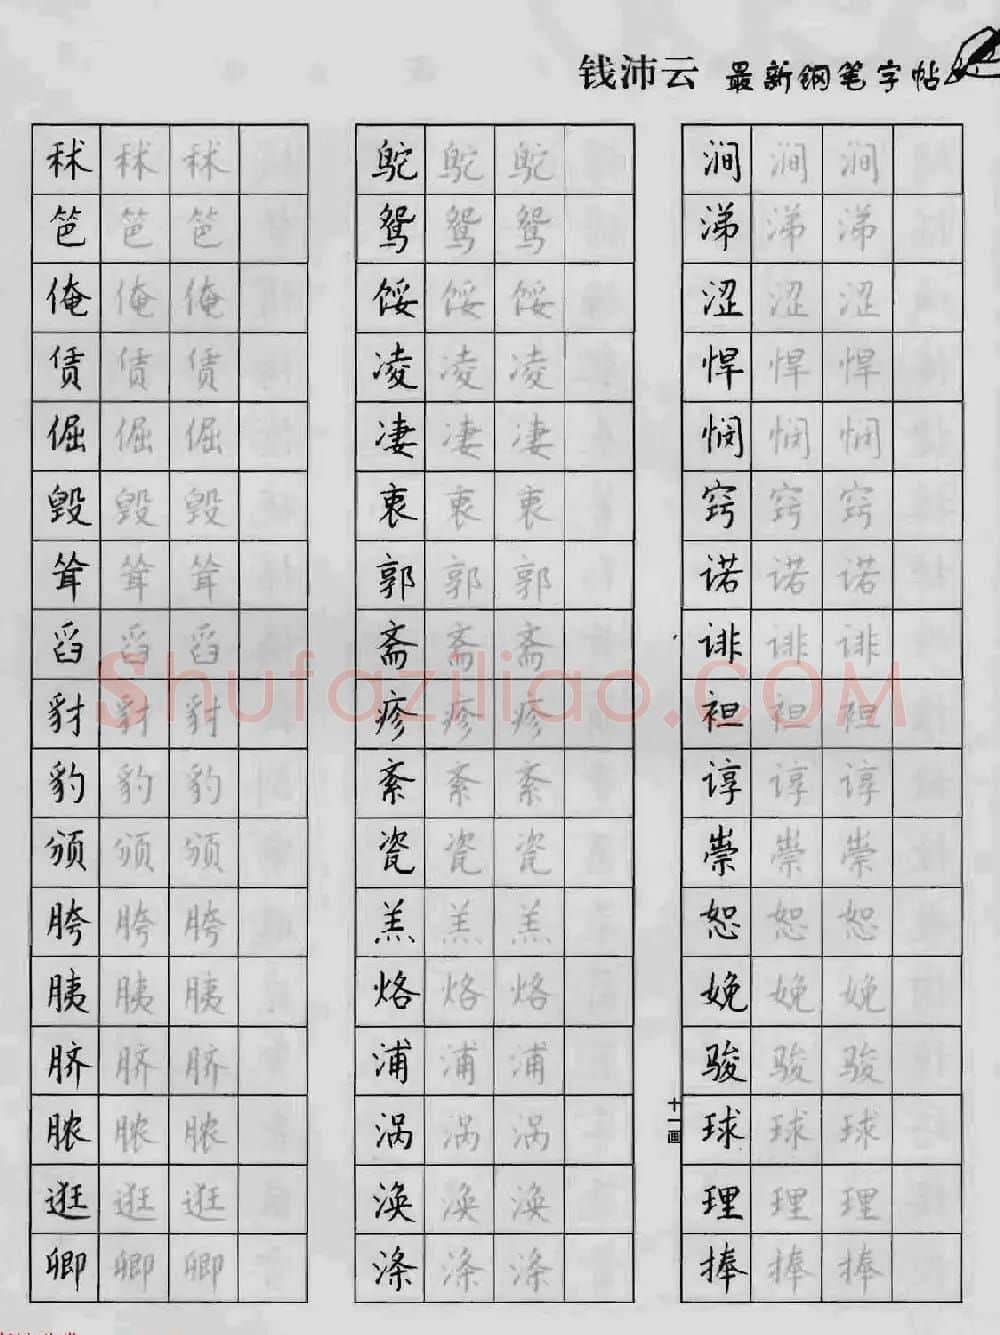 钱沛云 最新钢笔字帖
秫 秫 秫
笆 笆 笆
俺 俺 俺
赁 赁 赁
倔 倔 倔
毁 毁 毁
耸 耸 耸
舀 舀 舀
豺 豺 豺
豹 豹 豹
颁 颁 颁
胯 胯 胯
胰 胰 胰
脐 脐 脐
脓 脓 脓
逛 逛 逛
卿 卿 卿
鸵 鸵 鸵
鸳 鸳 鸳
馁 馁 馁
凌 凌 凌
凄 凄 凄
衷 衷 衷
郭 郭 郭
斋 斋 斋
疹 疹 疹
紊 紊 紊
瓷 瓷 瓷
羔 羔 羔
烙 烙 烙
浦 浦 浦
涡 涡 涡
涣 涣 涣
涤 涤 涤
涧 涧 涧
涕 涕 涕
涩 涩 涩
悍 悍 悍
悯 悯 悯
窍 窍 窍
诺 诺 诺
诽 诽 诽
袒 袒 袒
谆 谆 谆
祟 祟 祟
恕 恕 恕
娩 娩 娩
骏 骏 骏
十一画
球 球 球
理 理 理
捧 捧 捧
Shufaziliao.COM